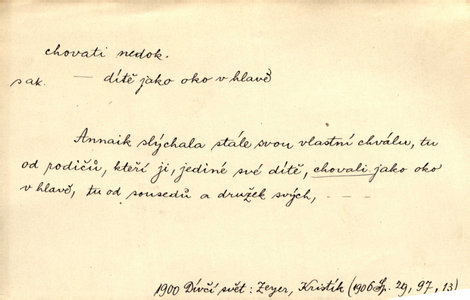 chovati nedok.
sak. — dítě jako oko v hlavě
Annaik slýchala stále svou vlastní chválu, tu
od rodičů, kteří ji, jediné své dítě, chovali jako oko
v hlavě, tu od sousedů a družek svých, — —
1900 Dívčí svět: Zeyer, Kristík (1906 Sp. 29, 97, 13)